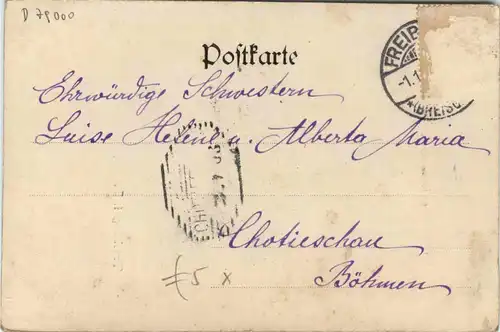 D 79000
Postkarte
FREIB
-1.1
(BREISG
Ehrwürdige Schwestern
Luise Helen u. Alberta Maria
Chotieschau
Böhmen
5 x